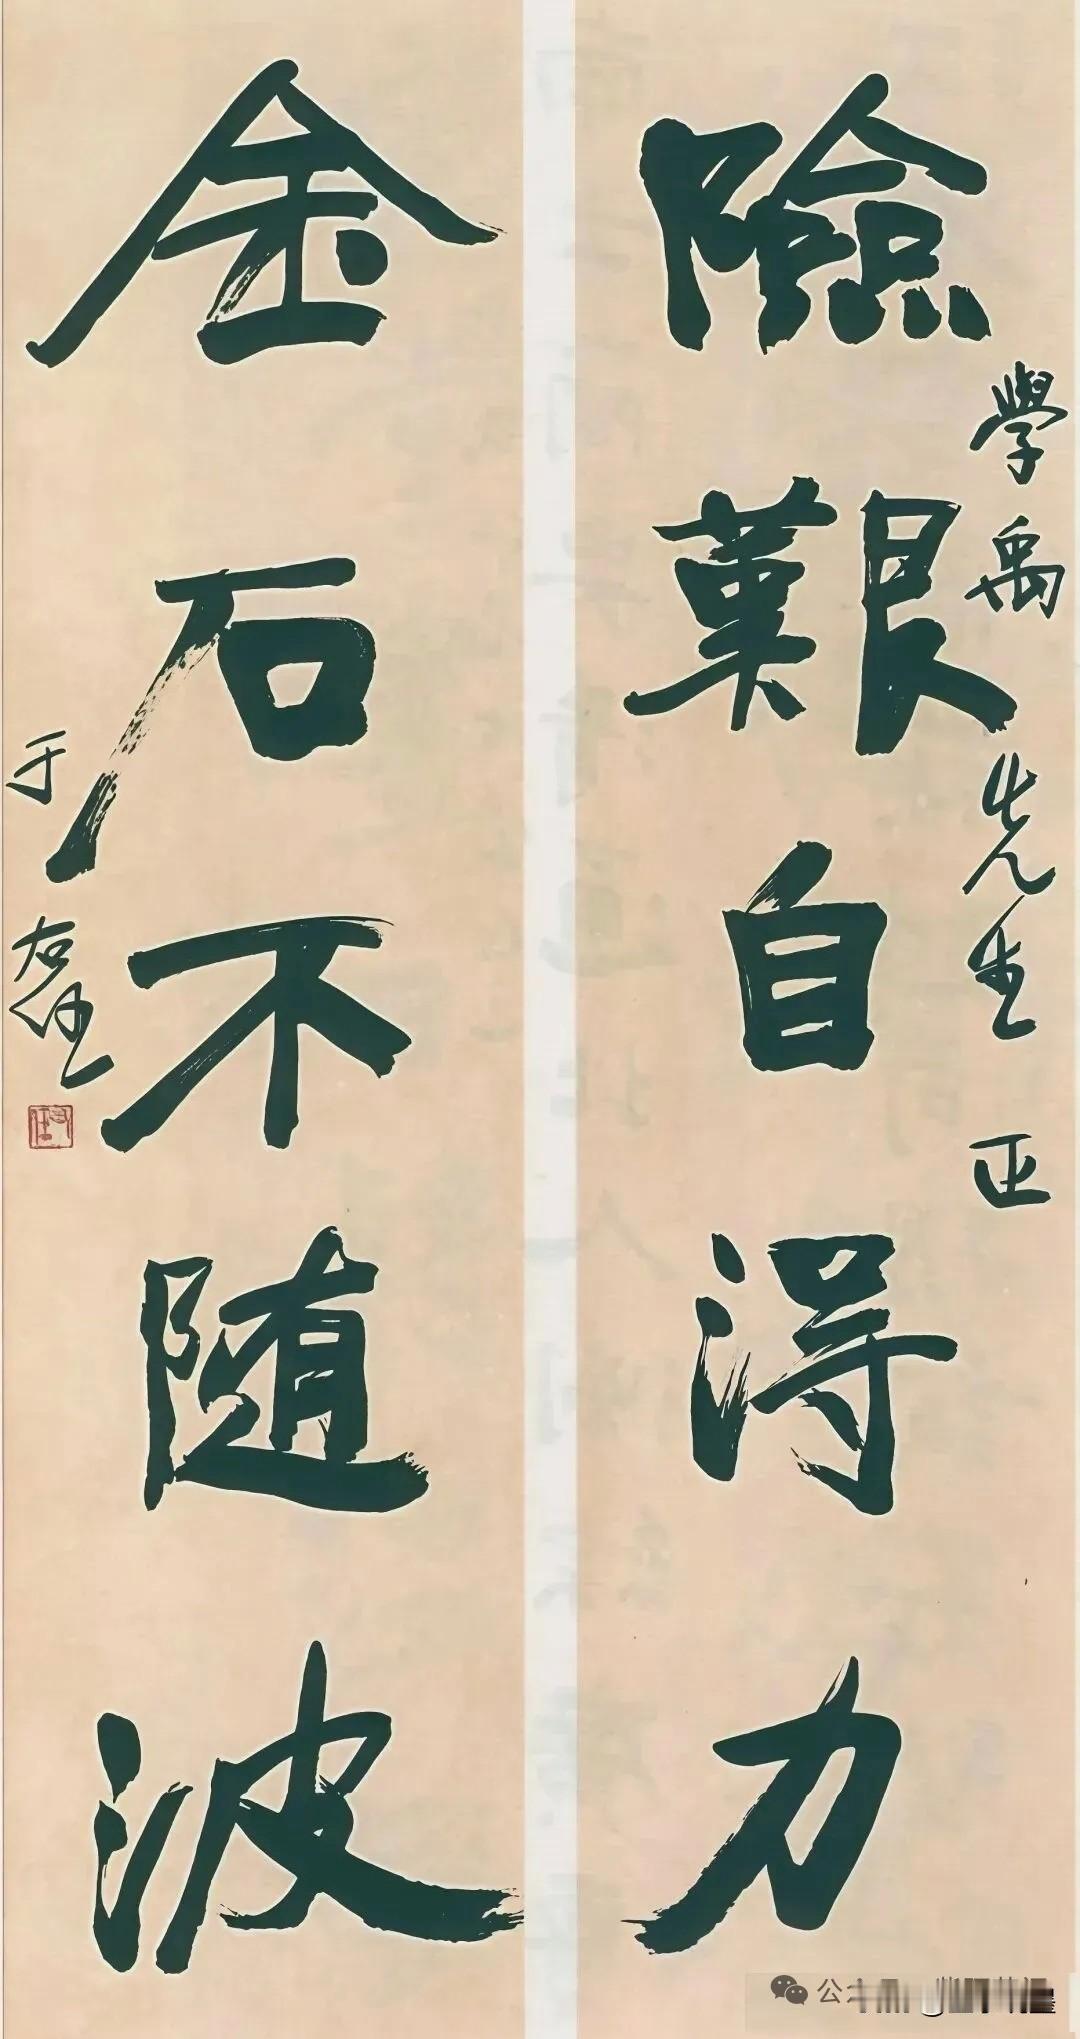 險艱自得力
學禹先生正
金石不随波
于右任
公众